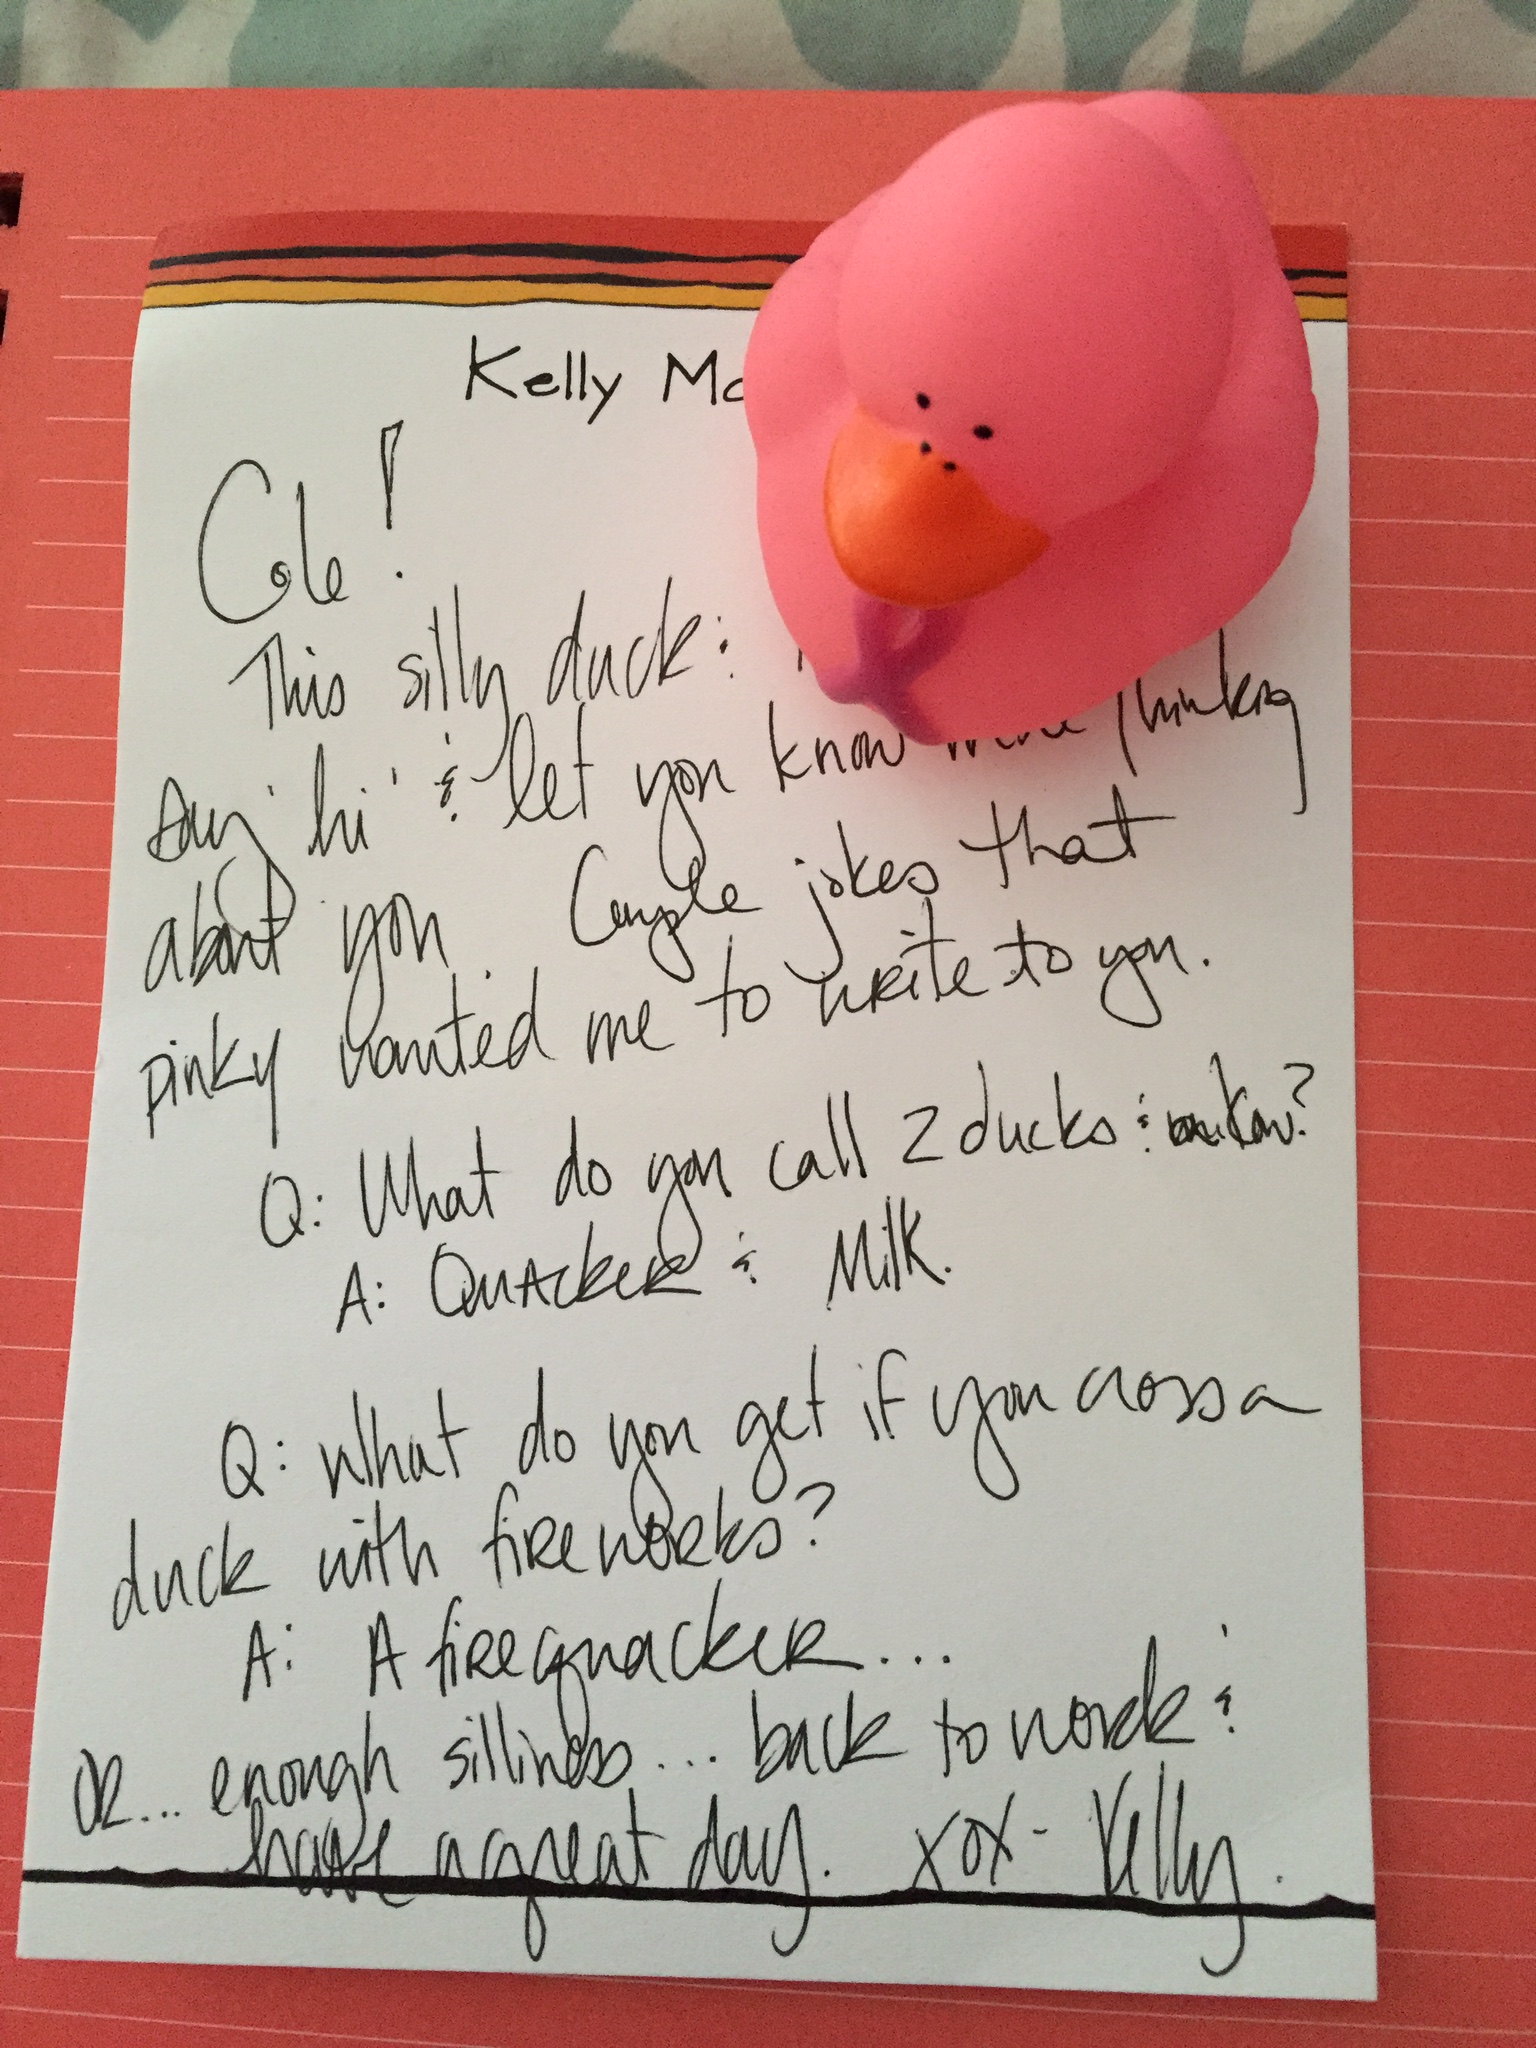 Kelly Mc
Cole!
This silly duck:
say "hi" & let you know we're thinking
about you Couple jokes that
pinky wanted me to write to you.
Q: What do you call 2 ducks & a cow?
A: Quacker & Milk.
Q: What do you get if you cross a
duck with fireworks?
A: A firequacker...
OK... enough silliness... back to work &
have a great day. xox- Kelly.